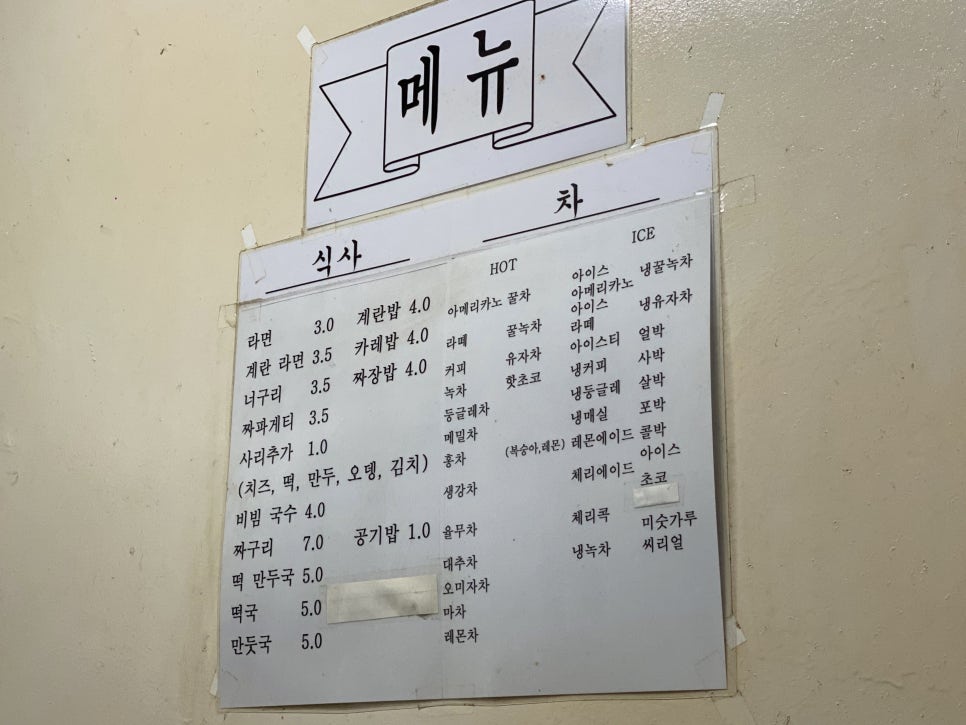 메뉴
식사
라면 3.0
계란 라면 3.5
너구리 3.5
짜파게티 3.5
사리추가 1.0
(치즈, 떡, 만두, 오뎅, 김치)
비빔 국수 4.0
짜구리 7.0
떡 만두국 5.0
떡국 5.0
만둣국 5.0
계란밥 4.0
카레밥 4.0
짜장밥 4.0
공기밥 1.0
차
HOT
아메리카노
라떼
커피
녹차
둥글레차
메밀차
홍차 (복숭아,레몬)
생강차
율무차
대추차
오미자차
마차
레몬차
꿀차
꿀녹차
유자차
핫초코
ICE
아이스
아메리카노
아이스
라떼
아이스티
냉커피
냉둥글레
냉매실
레몬에이드
체리에이드
체리콕
냉녹차
냉꿀녹차
냉유자차
얼박
사박
살박
포박
콜박
아이스
초코
미숫가루
씨리얼